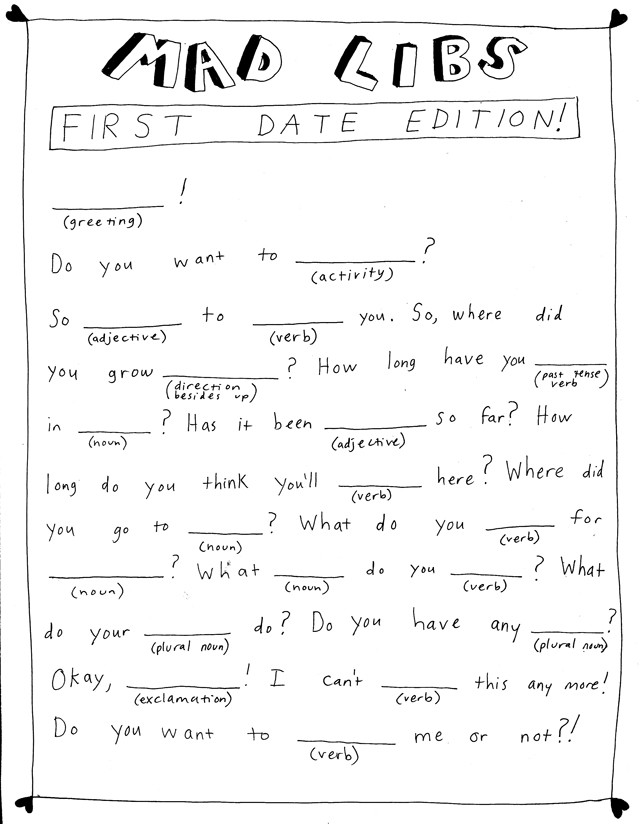 MAD LIBS
FIRST DATE EDITION!
__________ !
(greeting)
Do you want to __________ ?
(activity)
So __________ to __________ you. So, where did
(adjective) (verb)
you grow __________ ? How long have you __________
(direction besides up) (past tense verb)
in __________ ? Has it been __________ so far? How
(noun) (adjective)
long do you think you'll __________ here? Where did
(verb)
you go to __________ ? What do you __________ for
(noun) (verb)
__________ ? What __________ do you __________ ? What
(noun) (noun) (verb)
do your __________ do? Do you have any __________ ?
(plural noun) (plural noun)
Okay, __________ ! I can't __________ this any more!
(exclamation) (verb)
Do you want to __________ me or not?!
(verb)